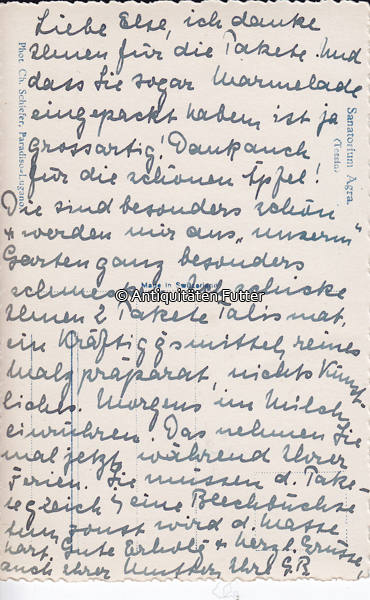 Liebe Else, ich danke
Ihnen für die Pakete. Und
dass Sie sogar Marmelade
eingepackt haben, ist ja
grossartig! Dank auch
für die schönen Äpfel!
Die sind besonders schön
+ werden mir aus "unserm"
Garten ganz besonders
schmecken. Ich schicke
Ihnen 2 Pakete Talismat,
ein Kräftiggsmittel, reines
Malzpräparat, nichts Künst-
liches. Morgens in Milch
einrühren. Das nehmen Sie
mal jetzt während Ihrer
Ferien. Sie müssen d. Pake-
te gleich in eine Blechbüchse
tun, sonst wird d. Masse
hart. Gute Erholg + herzl. Grüsse,
auch Ihrer Mutter, Ihre G.B.
Sanatorium Agra
(Tessin)
Phot. Ch. Schiefer, Paradiso-Lugano
Made in Switzerland
© Antiquitäten Futter